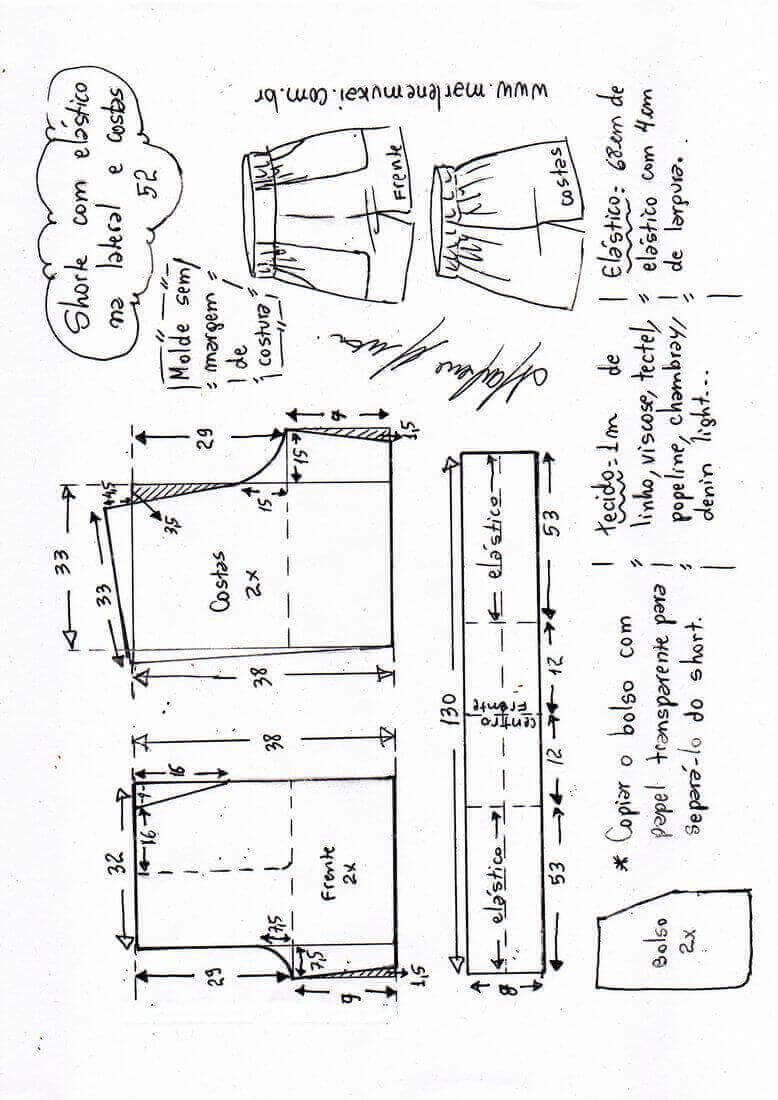 Shorte com elástico
na lateral e costas
52
www.marlenemukai.com.br
Molde sem
margem
de
costura
Frente
Costas
32
16
4
16
38
29
7,5
7,5
9
1,5
Frente
2x
33
33
4,5
3,5
29
15
15
9
1,5
38
Costas
2x
130
elástico
centro
Frente
elástico
53
12
12
53
8
Bolso
2x
* Copiar o bolso com
papel transparente para
separá-lo do short.
tecido=1m de
linho, viscose, tectel,
popeline, chambray,
denin light...
Elástico: 68cm de
elástico com 4cm
de largura.